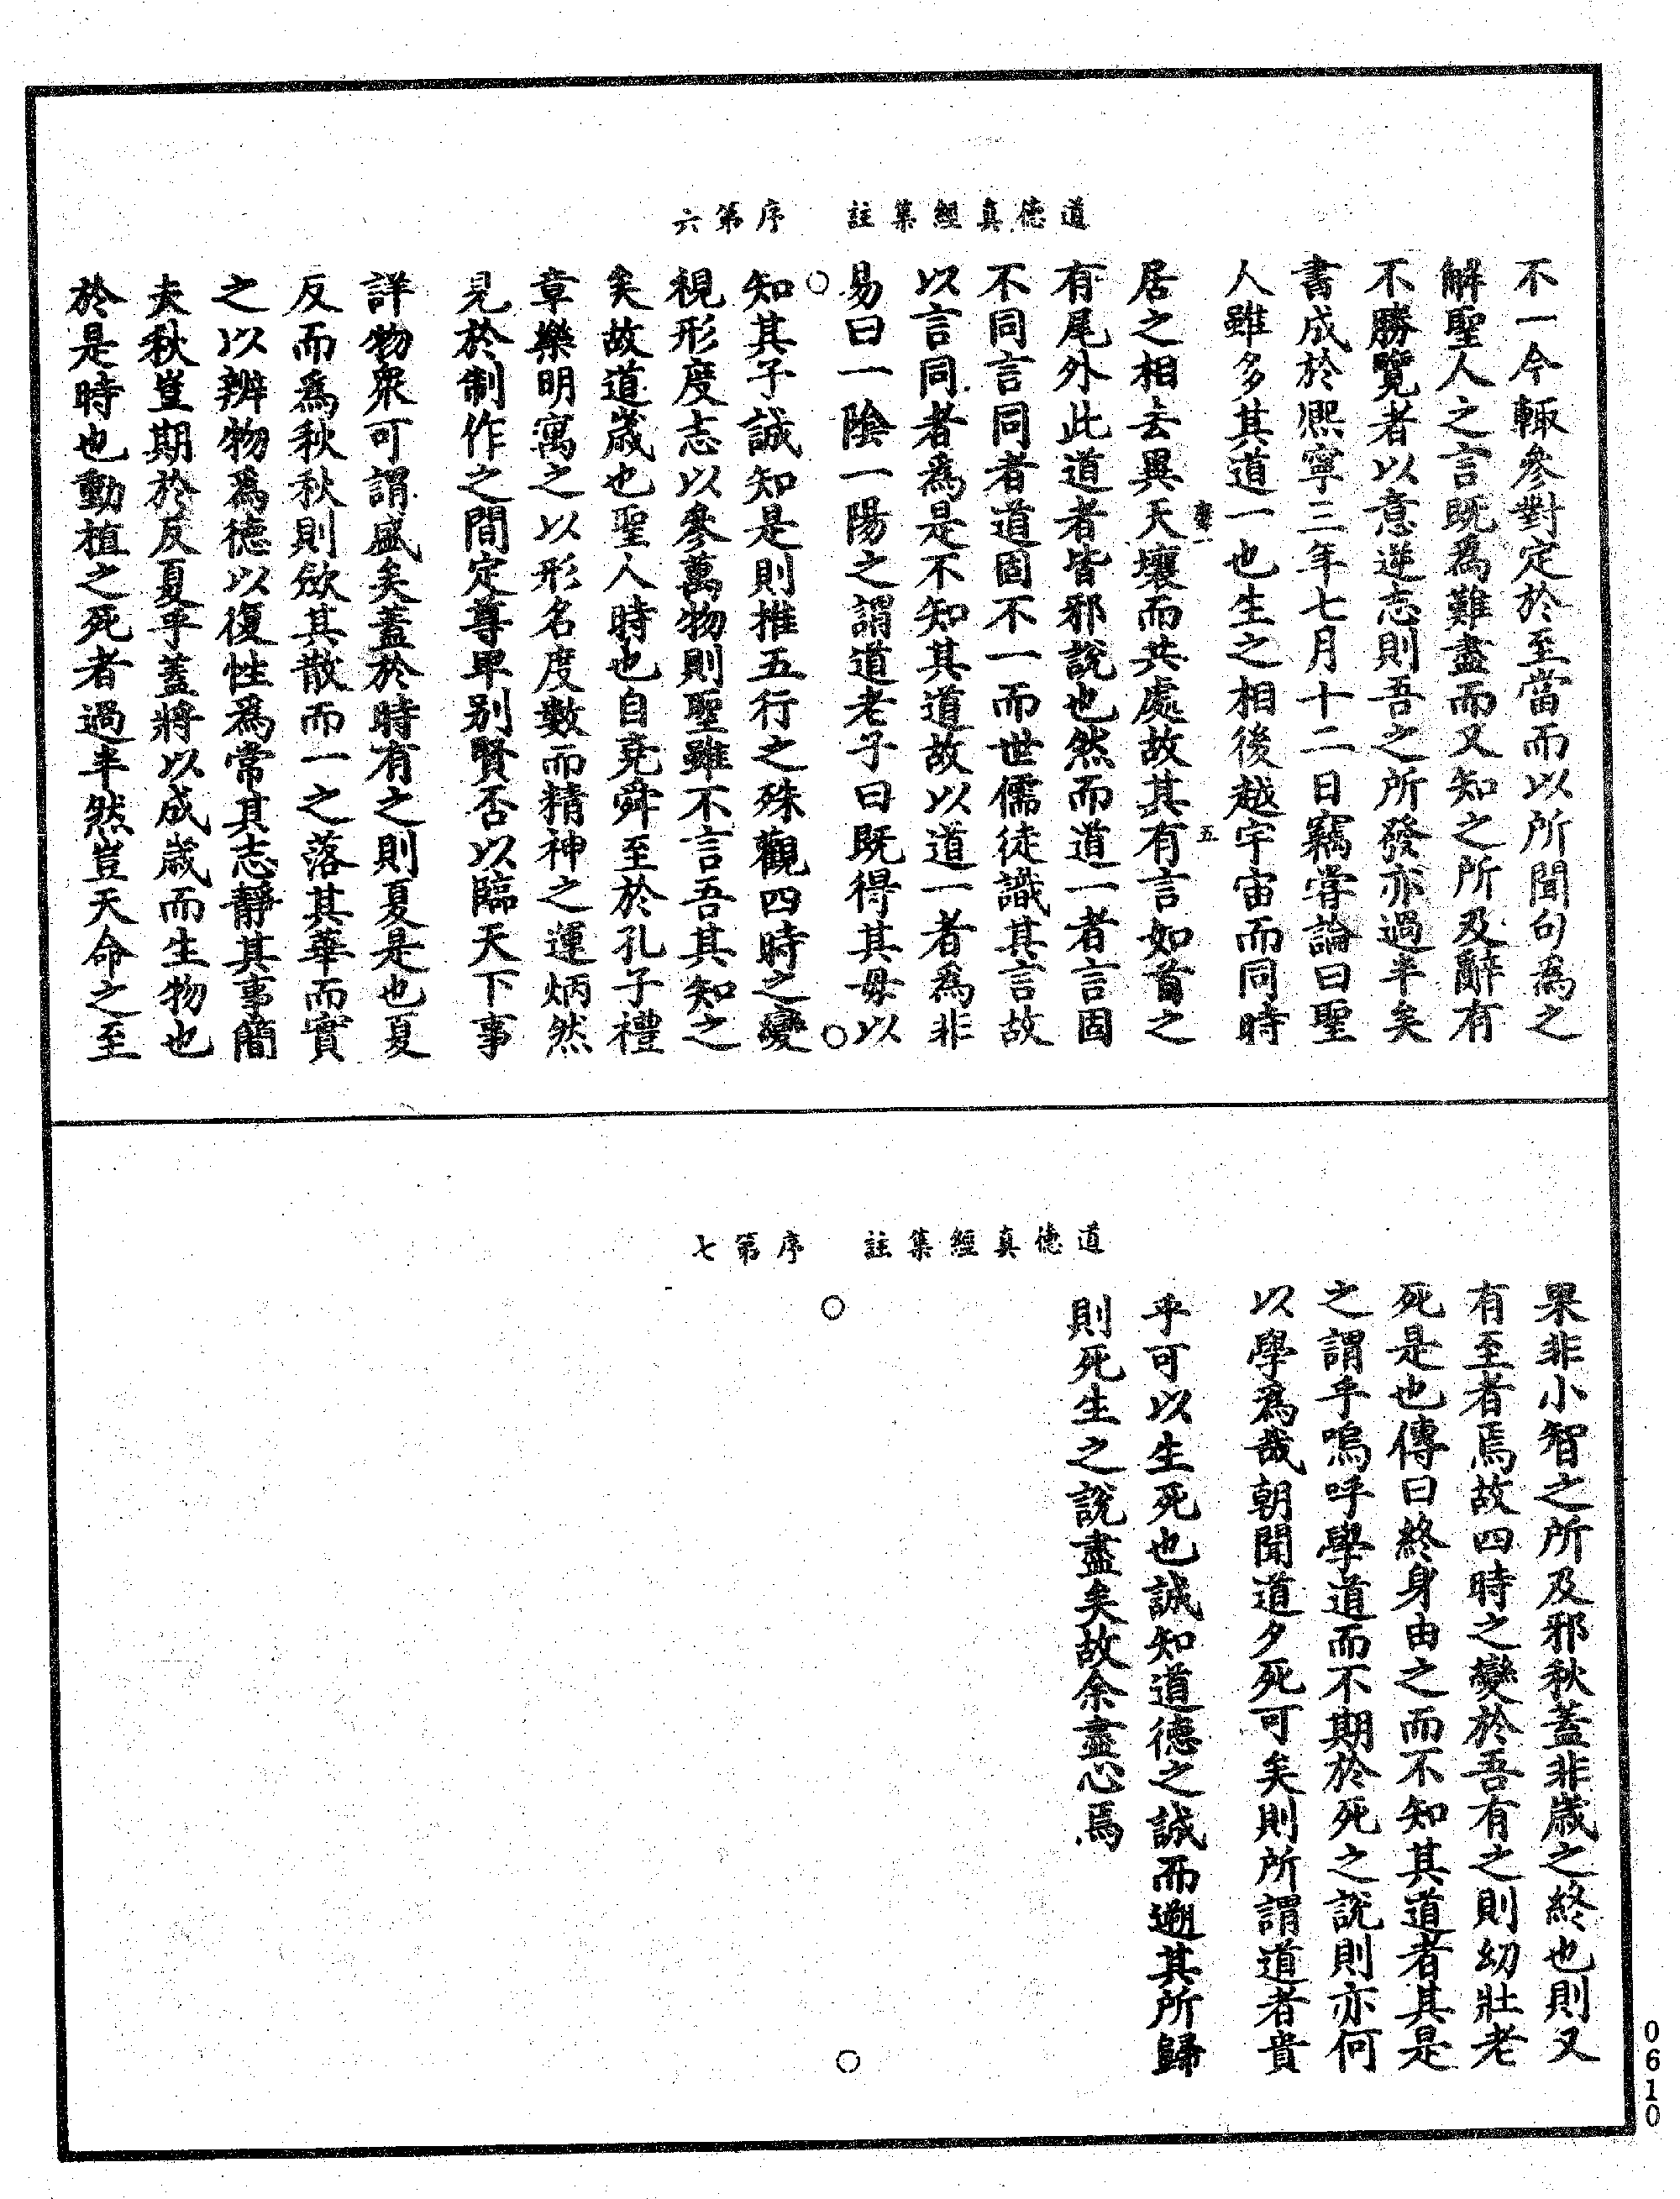 道德真經集註　序第六
不一今輙參對定於至當而以所聞句為之
解聖人之言既為難盡而又知之所及辭有
不勝覽者以意逆志則吾之所發亦過半矣
書成於熈寧三年七月十二日竊嘗論曰聖
人雖多其道一也生之相後越宇宙而同時
居之相去異天壤而共處故其有言如首之
有尾外此道者皆邪說也然而道一者言固
不同言同者道固不一而世儒徒識其言故
以言同者為是不知其道故以道一者為非
易曰一陰一陽之謂道老子曰既得其母以
知其子誠知是則推五行之殊觀四時之變
視形度志以參萬物則聖雖不言吾其知之
矣故道歲也聖人時也自堯舜至於孔子禮
章樂明寓之以形名度數而精神之運炳然
見於制作之間定尊卑别賢否以臨天下事
詳物衆可謂盛矣蓋於時有之則夏是也夏
反而為秋秋則斂其散而一之落其華而實
之以辨物為德以復性為常其志靜其事簡
夫秋豈期於反夏乎蓋將以成歲而生物也
於是時也動植之死者過半然豈天命之至
道德真經集註　序第七
果非小智之所及邪秋蓋非歲之終也則又
有至者焉故四時之變於吾有之則幼壯老
死是也傳曰終身由之而不知其道者其是
之謂乎嗚呼學道而不期於死之說則亦何
以學為哉朝聞道夕死可矣則所謂道者貴
乎可以生死也誠知道德之誠而遡其所歸
則死生之說盡矣故余盡心焉
0610